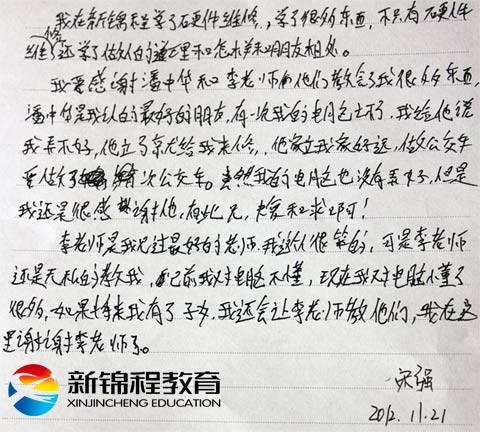 我在新锦程学了硬件维修,学了很多东西,不只有硬件
维修还学了做人的道理和怎样和朋友相处。
我要感谢潘中华和李老师,他们教会了我很多东西,
潘中华是我认的最好的朋友,有一次我的电脑，我给他说
我弄不好,他立了就给我来修,他家离我家好远,做公交车
要做好 次公交车。虽然我的电脑也没有弄好,但是
我还是很感谢他,有此兄,夫复何求啊!
李老师是我见过最好的老师,我这人很笨的,可是李老师
还是无私的教我,己前我对电脑不懂,现在我对电脑懂了
很多,如果将来我有了子女,我还会让李老师教他们,我在这
里谢谢李老师了。
宋强
2012.11.21
新锦程教育
XINJINCHENG EDUCATION